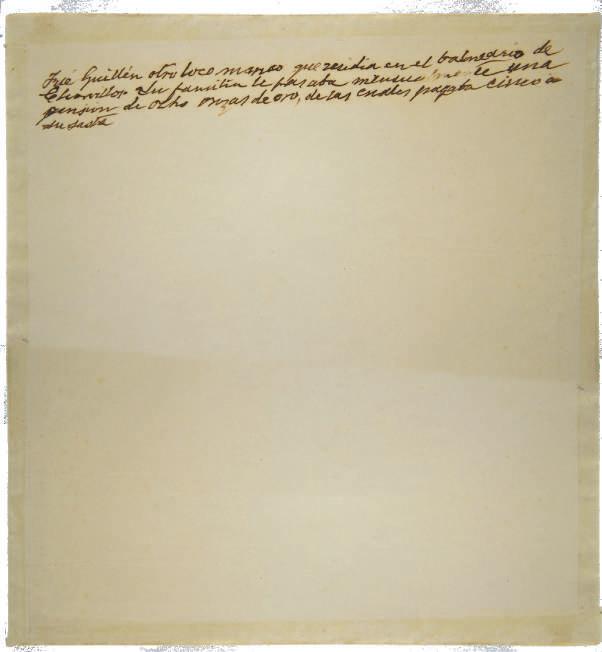 José Guillén otro loco manso que residia en el balneario de
Chorrillos. Su familia le pasaba mensualmente una
pension de ocho onzas de oro, de las cuales pagaba cinco a
su sasta